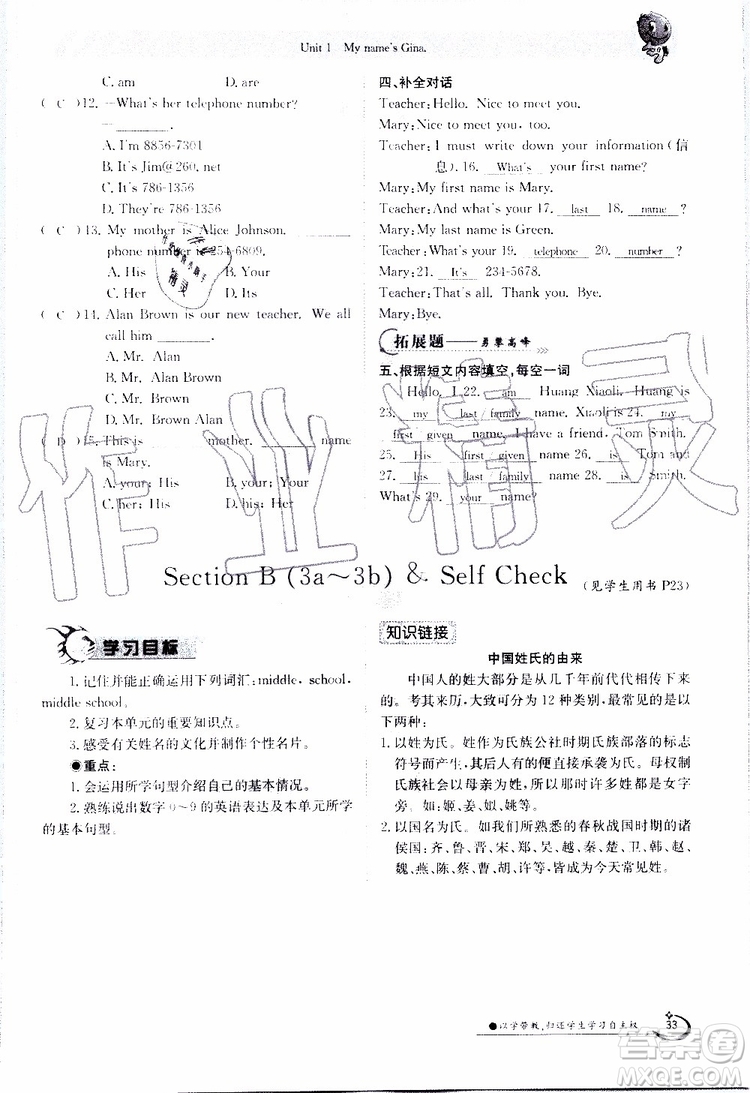 Unit 1 My name's Gina.
C. am D. are
( C )12. —What's her telephone number?
—________.
A. I'm 8856-7301
B. It's Jim@260. net
C. It's 786-1356
D. They're 786-1356
( C )13. My mother is Alice Johnson. ________
phone number is 254-6809.
A. His B. Your
C. Her D. Its
( C )14. Alan Brown is our new teacher. We all
call him ________.
A. Mr. Alan
B. Alan Brown
C. Mr. Brown
D. Mr. Alan Brown
( D )15. This is ________ mother. ________ name
is Mary.
A. your; His B. your; Your
C. her; His D. his; Her
四、补全对话
Teacher: Hello. Nice to meet you.
Mary: Nice to meet you, too.
Teacher: I must write down your information (信
息). 16. What's your first name?
Mary: My first name is Mary.
Teacher: And what's your 17. last 18. name ?
Mary: My last name is Green.
Teacher: What's your 19. telephone 20. number ?
Mary: 21. It's 234-5678.
Teacher: That's all. Thank you. Bye.
Mary: Bye.
拓展题——勇攀高峰
五、根据短文内容填空,每空一词
Hello, I 22. am Huang Xiaoli. Huang is
23. my last/family name. Xiaoli is 24. my
first given name. I have a friend, Tom Smith.
25. His first given name 26. is Tom and
27. his last family name 28. is Smith.
What's 29. your name?
Section B (3a～3b) & Self Check (见学生用书 P23)
学习目标
1. 记住并能正确运用下列词汇: middle, school,
middle school。
2. 复习本单元的重要知识点。
3. 感受有关姓名的文化并制作个性名片。
●重点:
1. 会运用所学句型介绍自己的基本情况。
2. 熟练说出数字 0～9 的英语表达及本单元所学
的基本句型。
知识链接
中国姓氏的由来
中国人的姓大部分是从几千年前代代相传下来
的。考其来历,大致可分为 12 种类别,最常见的有以
下两种:
1. 以姓为氏。姓作为氏族公社时期氏族部落的标志
符号而产生,其后人有的便直接承袭为氏。母权制
氏族社会以母亲为姓,所以那时许多姓都是女字
旁。如:姬、姜、姒、姚等。
2. 以国名为氏。如我们所熟悉的春秋战国时期的诸
侯国:齐、鲁、晋、宋、郑、吴、越、秦、楚、卫、韩、赵、
魏、燕、陈、蔡、曹、胡、许等,皆成为今天常见姓。
●以学带教,归还学生学习自主权 33
作业精灵
答案圈
MXQE.COM